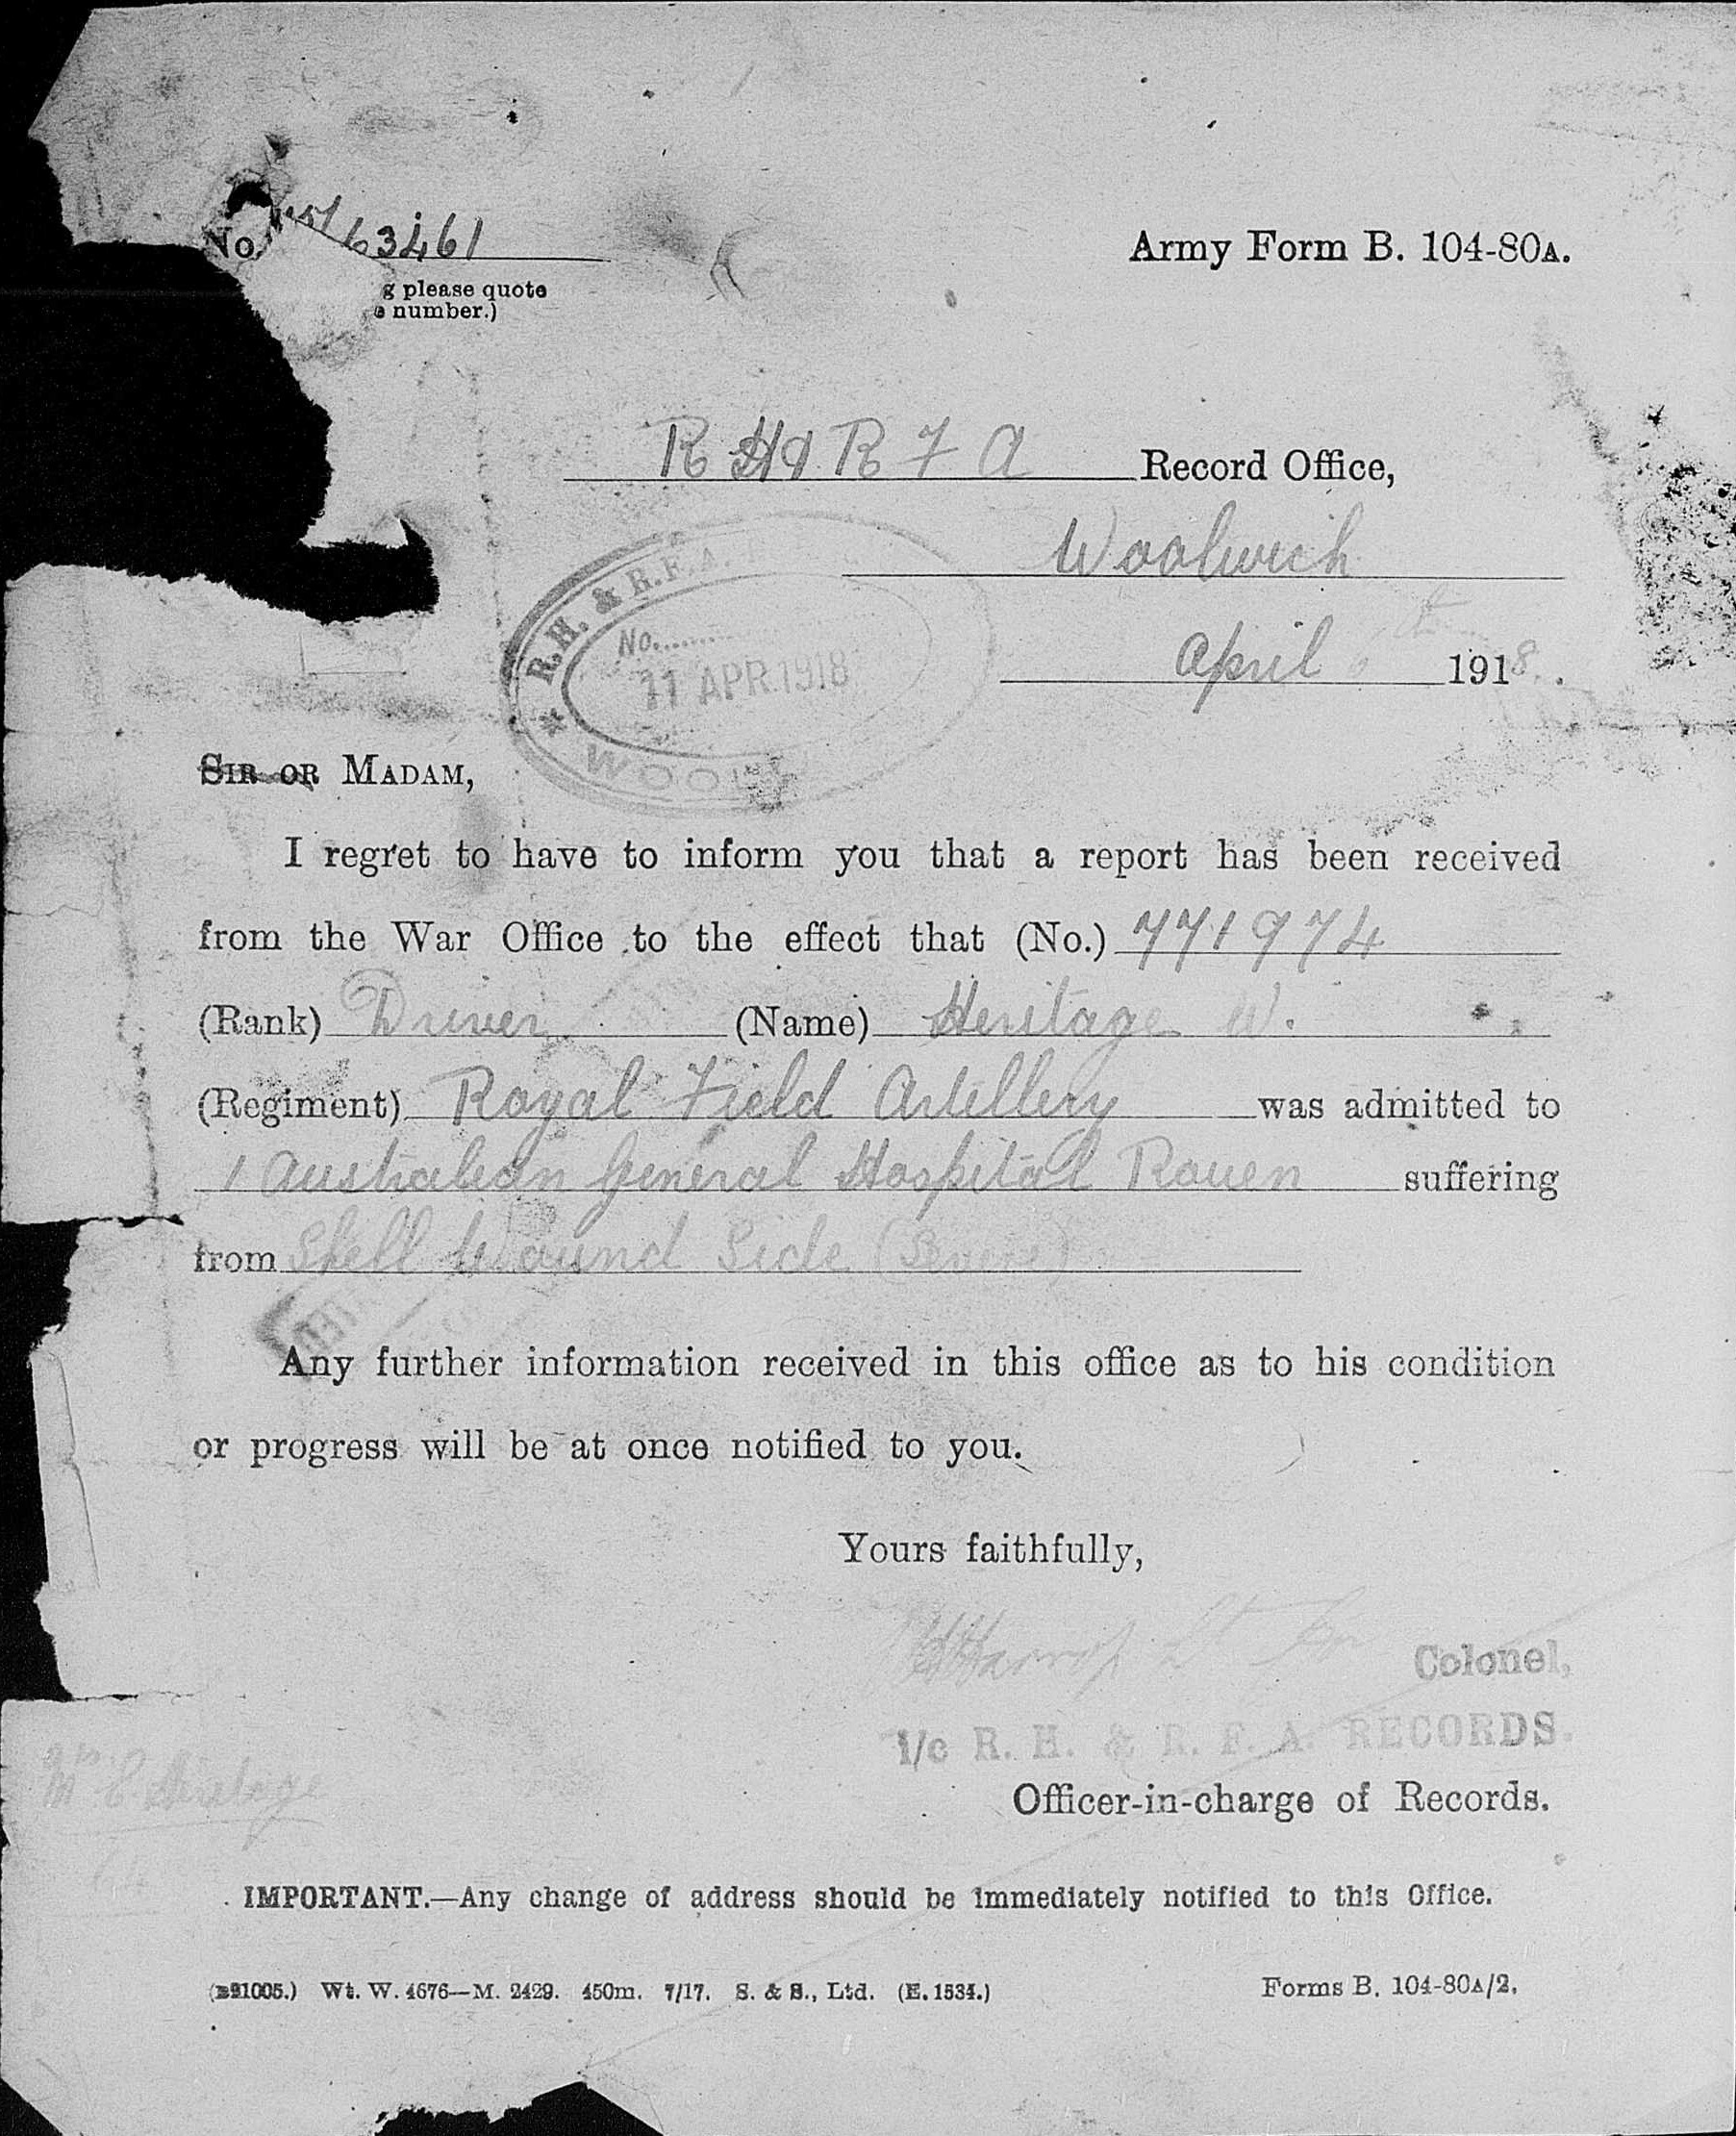 No. 63461
g please quote
e number.)
Army Form B. 104-80A.
R H & R F A Record Office,
Woolwich
April 1918.
R.H. & R.F.A.
No.........
11 APR 1918
WOOL
SIR OR MADAM,
I regret to have to inform you that a report has been received
from the War Office to the effect that (No.) 771974
(Rank) Driver (Name) Heritage W.
(Regiment) Royal Field Artillery was admitted to
1 Australian General Hospital Rouen suffering
from Shell Wound Side (Severe)
Any further information received in this office as to his condition
or progress will be at once notified to you.
Yours faithfully,
Lt for Colonel,
i/c R. H. & R. F. A. RECORDS.
Officer-in-charge of Records.
Mrs E Heritage
IMPORTANT.—Any change of address should be immediately notified to this Office.
(B21005.) Wt. W. 4676—M. 2429. 450m. 7/17. S. & S., Ltd. (E. 1534.)
Forms B. 104-80A/2.